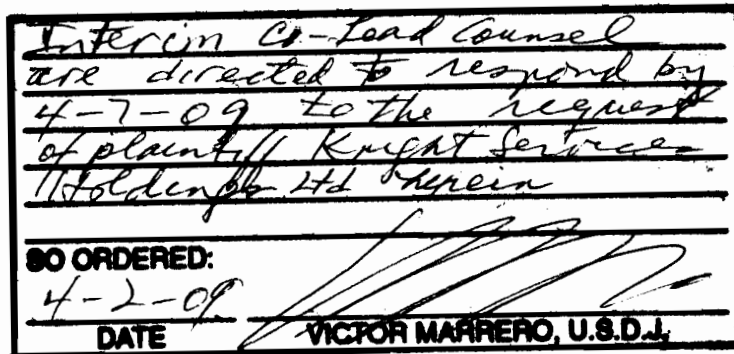 Interim Co-Lead Counsel
are directed to respond by
4-7-09 to the request
of plaintiff Knight Services
Holdings Ltd herein
SO ORDERED:
4-2-09
DATE VICTOR MARRERO, U.S.D.J.